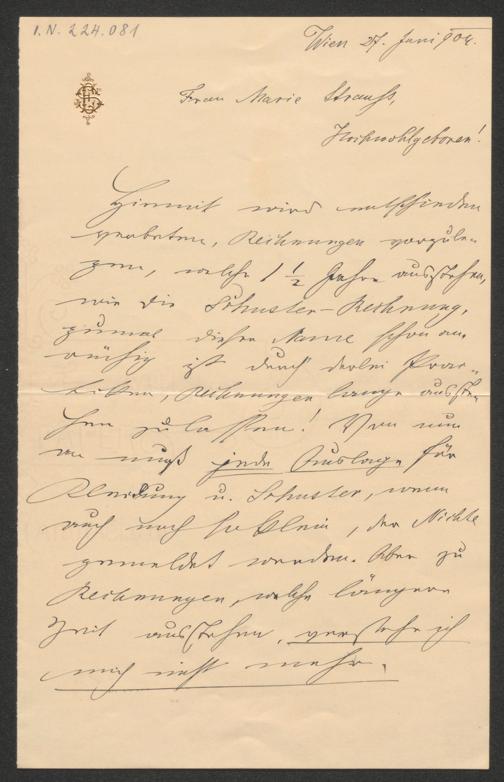 I.N. 224.081
Wien 27. Juni 904.
Frau Marie Strauss,
Hochwohlgeboren!
Hiermit wird entschieden
verboten, Rechnungen vorzule-
gen, welche 1 1/2 Jahre ausstehen,
wie die Schuster-Rechnung,
zumal dieser Name schon an-
rüchig ist durch derlei Prac-
tiken, Rechnungen lange ausste-
hen zu lassen! Von nun
an muß jede Auslage für
Kleidung u. Schuster, wenn
auch noch so klein, der Nichte
gemeldet werden. Aber zu
Rechnungen, welche längere
Zeit ausstehen, verstehe ich
mich nicht mehr.